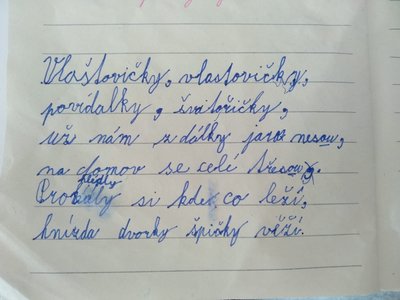 Vlaštovičky, vlastovičky,
povídalky, švitořičky,
už nám z dálky jaro nesou,
na domov se celí třesou.
Prohlédly si kde co leží,
hnízda dvorky špičky věží.